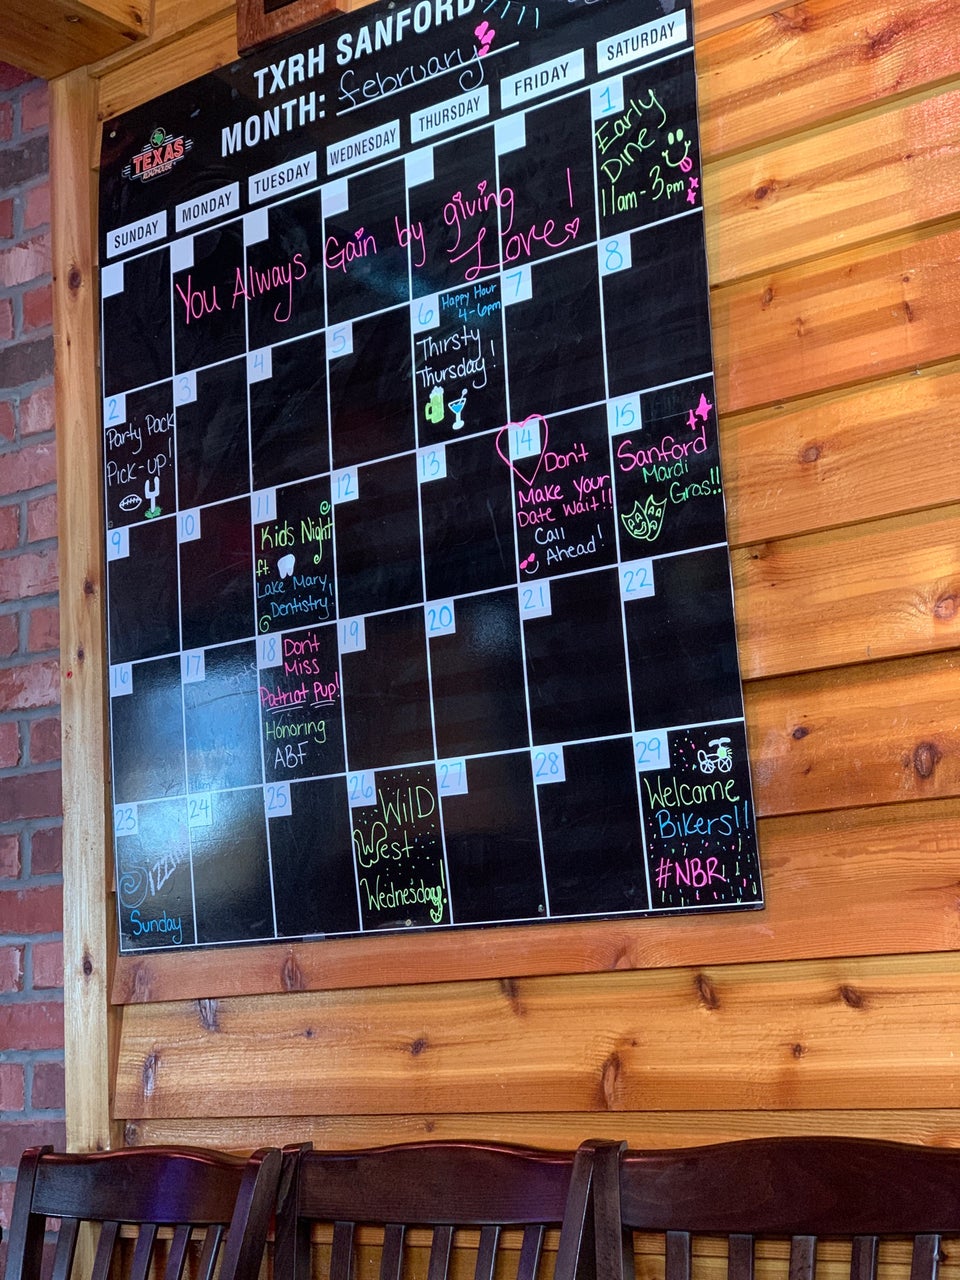 TXRH SANFORD
MONTH: february
TEXAS
ROADHOUSE
SUNDAY
MONDAY
TUESDAY
WEDNESDAY
THURSDAY
FRIDAY
SATURDAY
You Always Gain by giving
Love!
1
Early
Dine
11am-3pm
2
Party Pack
Pick-up!
3
4
5
6
Happy Hour
4-6pm
Thirsty
Thursday!
7
8
9
10
11
Kids Night
ft.
Lake Mary
Dentistry
12
13
14
Don't
Make Your
Date Wait!!
Call
Ahead!
15
Sanford
Mardi
Gras!!
16
17
18
Don't
Miss
Patriot Pup!
Honoring
ABF
19
20
21
22
23
Sunday
24
25
26
Wild
West
Wednesday!
27
28
29
Welcome
Bikers!!
#NBR